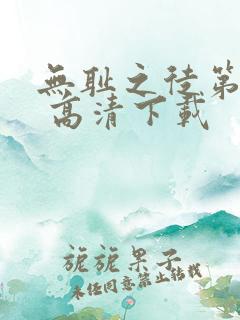 無耻之徒第
高清下載
旎旎果子
未经同意禁止转载